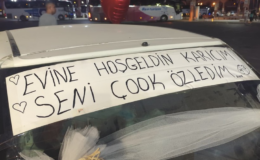 EVİNE HOŞGELDİN KARICIM
SENİ ÇOOK ÖZLEDİM